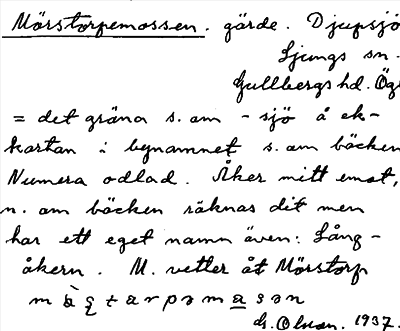 Mörstorpemossen. gärde. Djupsjö
Ljungs sn.
Gullbergs hd. Ög
= det gröna s. om -sjö å ek-
kartan i bynamnet s. om bäcken
Numera odlad. Åker mitt emot,
n. om bäcken räknas dit men
har ett eget namn även: Lång-
åkern. M. vetter åt Mörstorp
G. Olson. 1937.